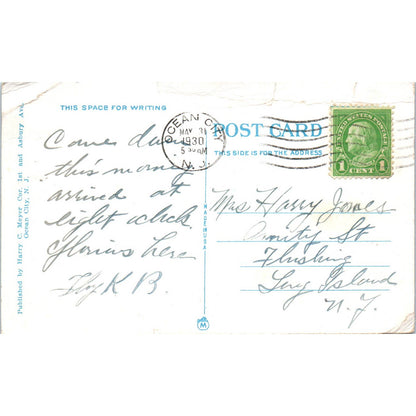 THIS SPACE FOR WRITING
Came down
this morning
arrived at
eight o'clock
Glorious here
K B.
Published by Harry C. Meyer Co., 1st and Asbury Ave.
Ocean City, N. J.
MADE IN USA
M
OCEAN CITY
MAY 31
1930
N. J.
POST CARD
THIS SIDE IS FOR THE ADDRESS
UNITED STATES POSTAGE
1 CENT 1
Mrs Harry Jones
St
Flushing
Long Island
N. Y.